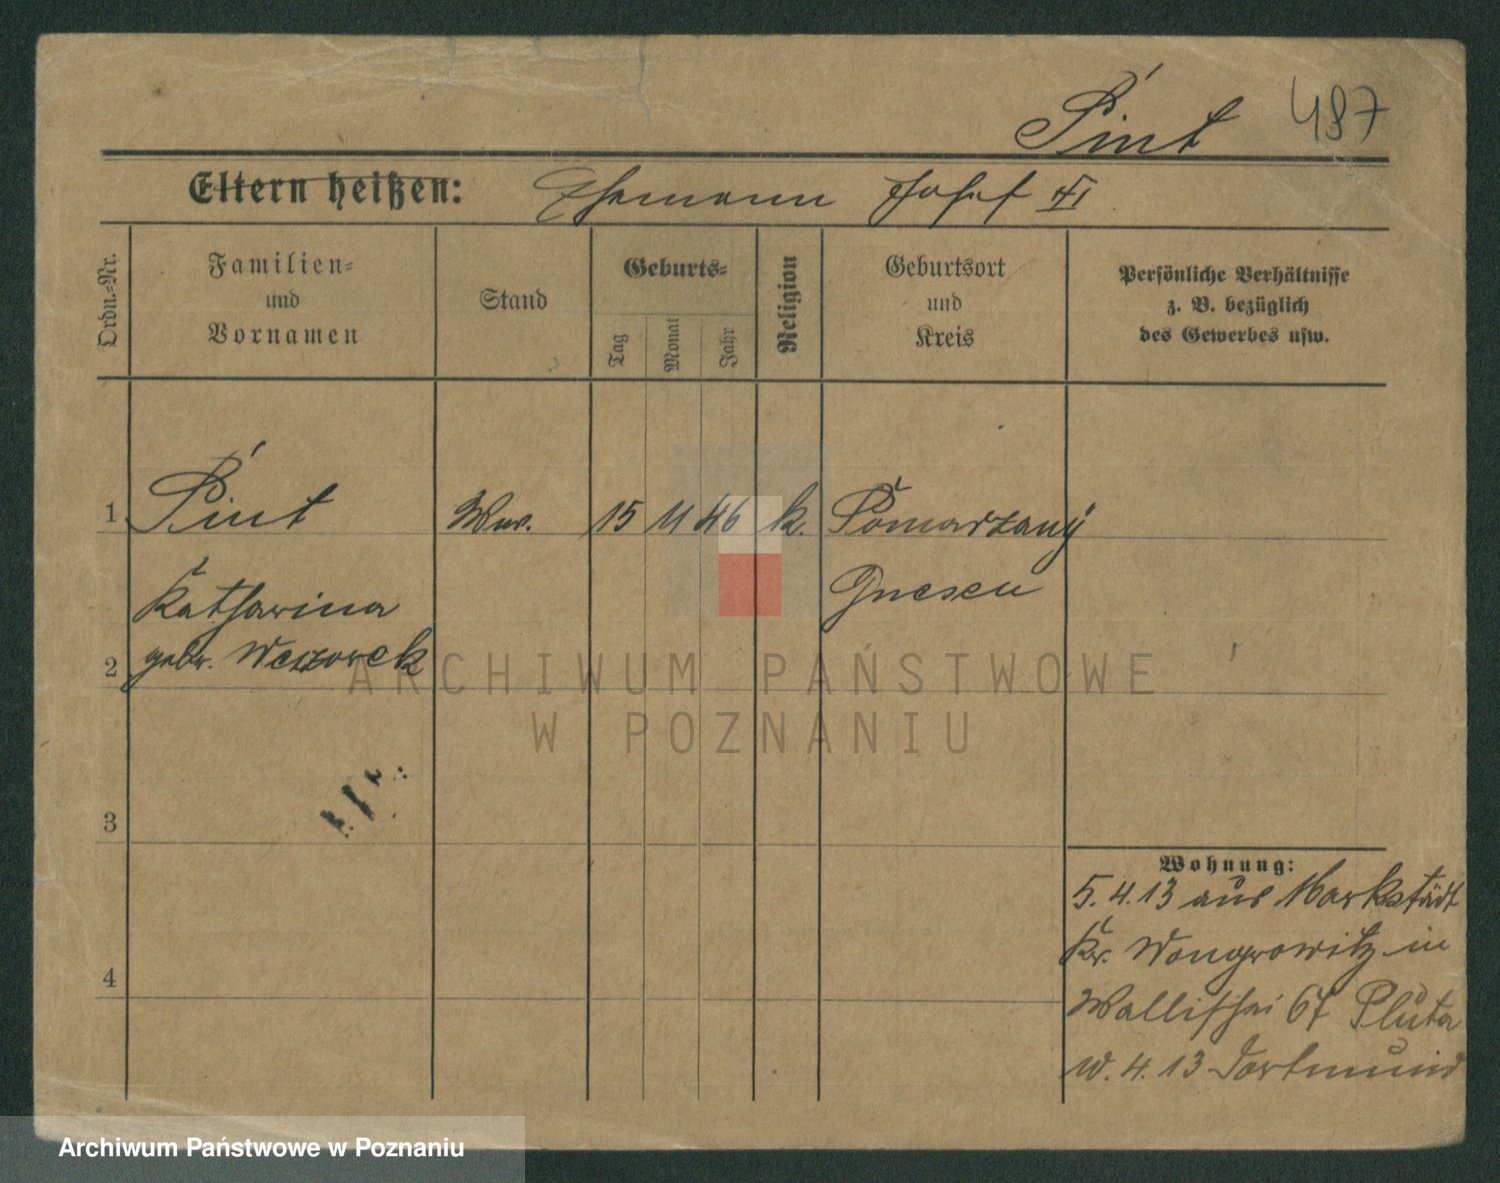 Pint 487
Eltern heißen: Ehemann Josef
Ordn.-Nr.
Familien-
und
Vornamen
Stand
Geburts-
Tag
Monat
Jahr
Religion
Geburtsort
und
Kreis
Persönliche Verhältnisse
z. B. bezüglich
des Gewerbes usw.
1 Pint Ww. 15 11 46 k. Pomarzany
Katharina Gnesen
2 gebr. Weszorek
3
4
Wohnung:
5. 4. 13 aus Markstädt
Kr. Wongrowitz in
Wallischei 67 Pluta
4. 13 Dortmund
ARCHIWUM PAŃSTWOWE
W POZNANIU
Archiwum Państwowe w Poznaniu